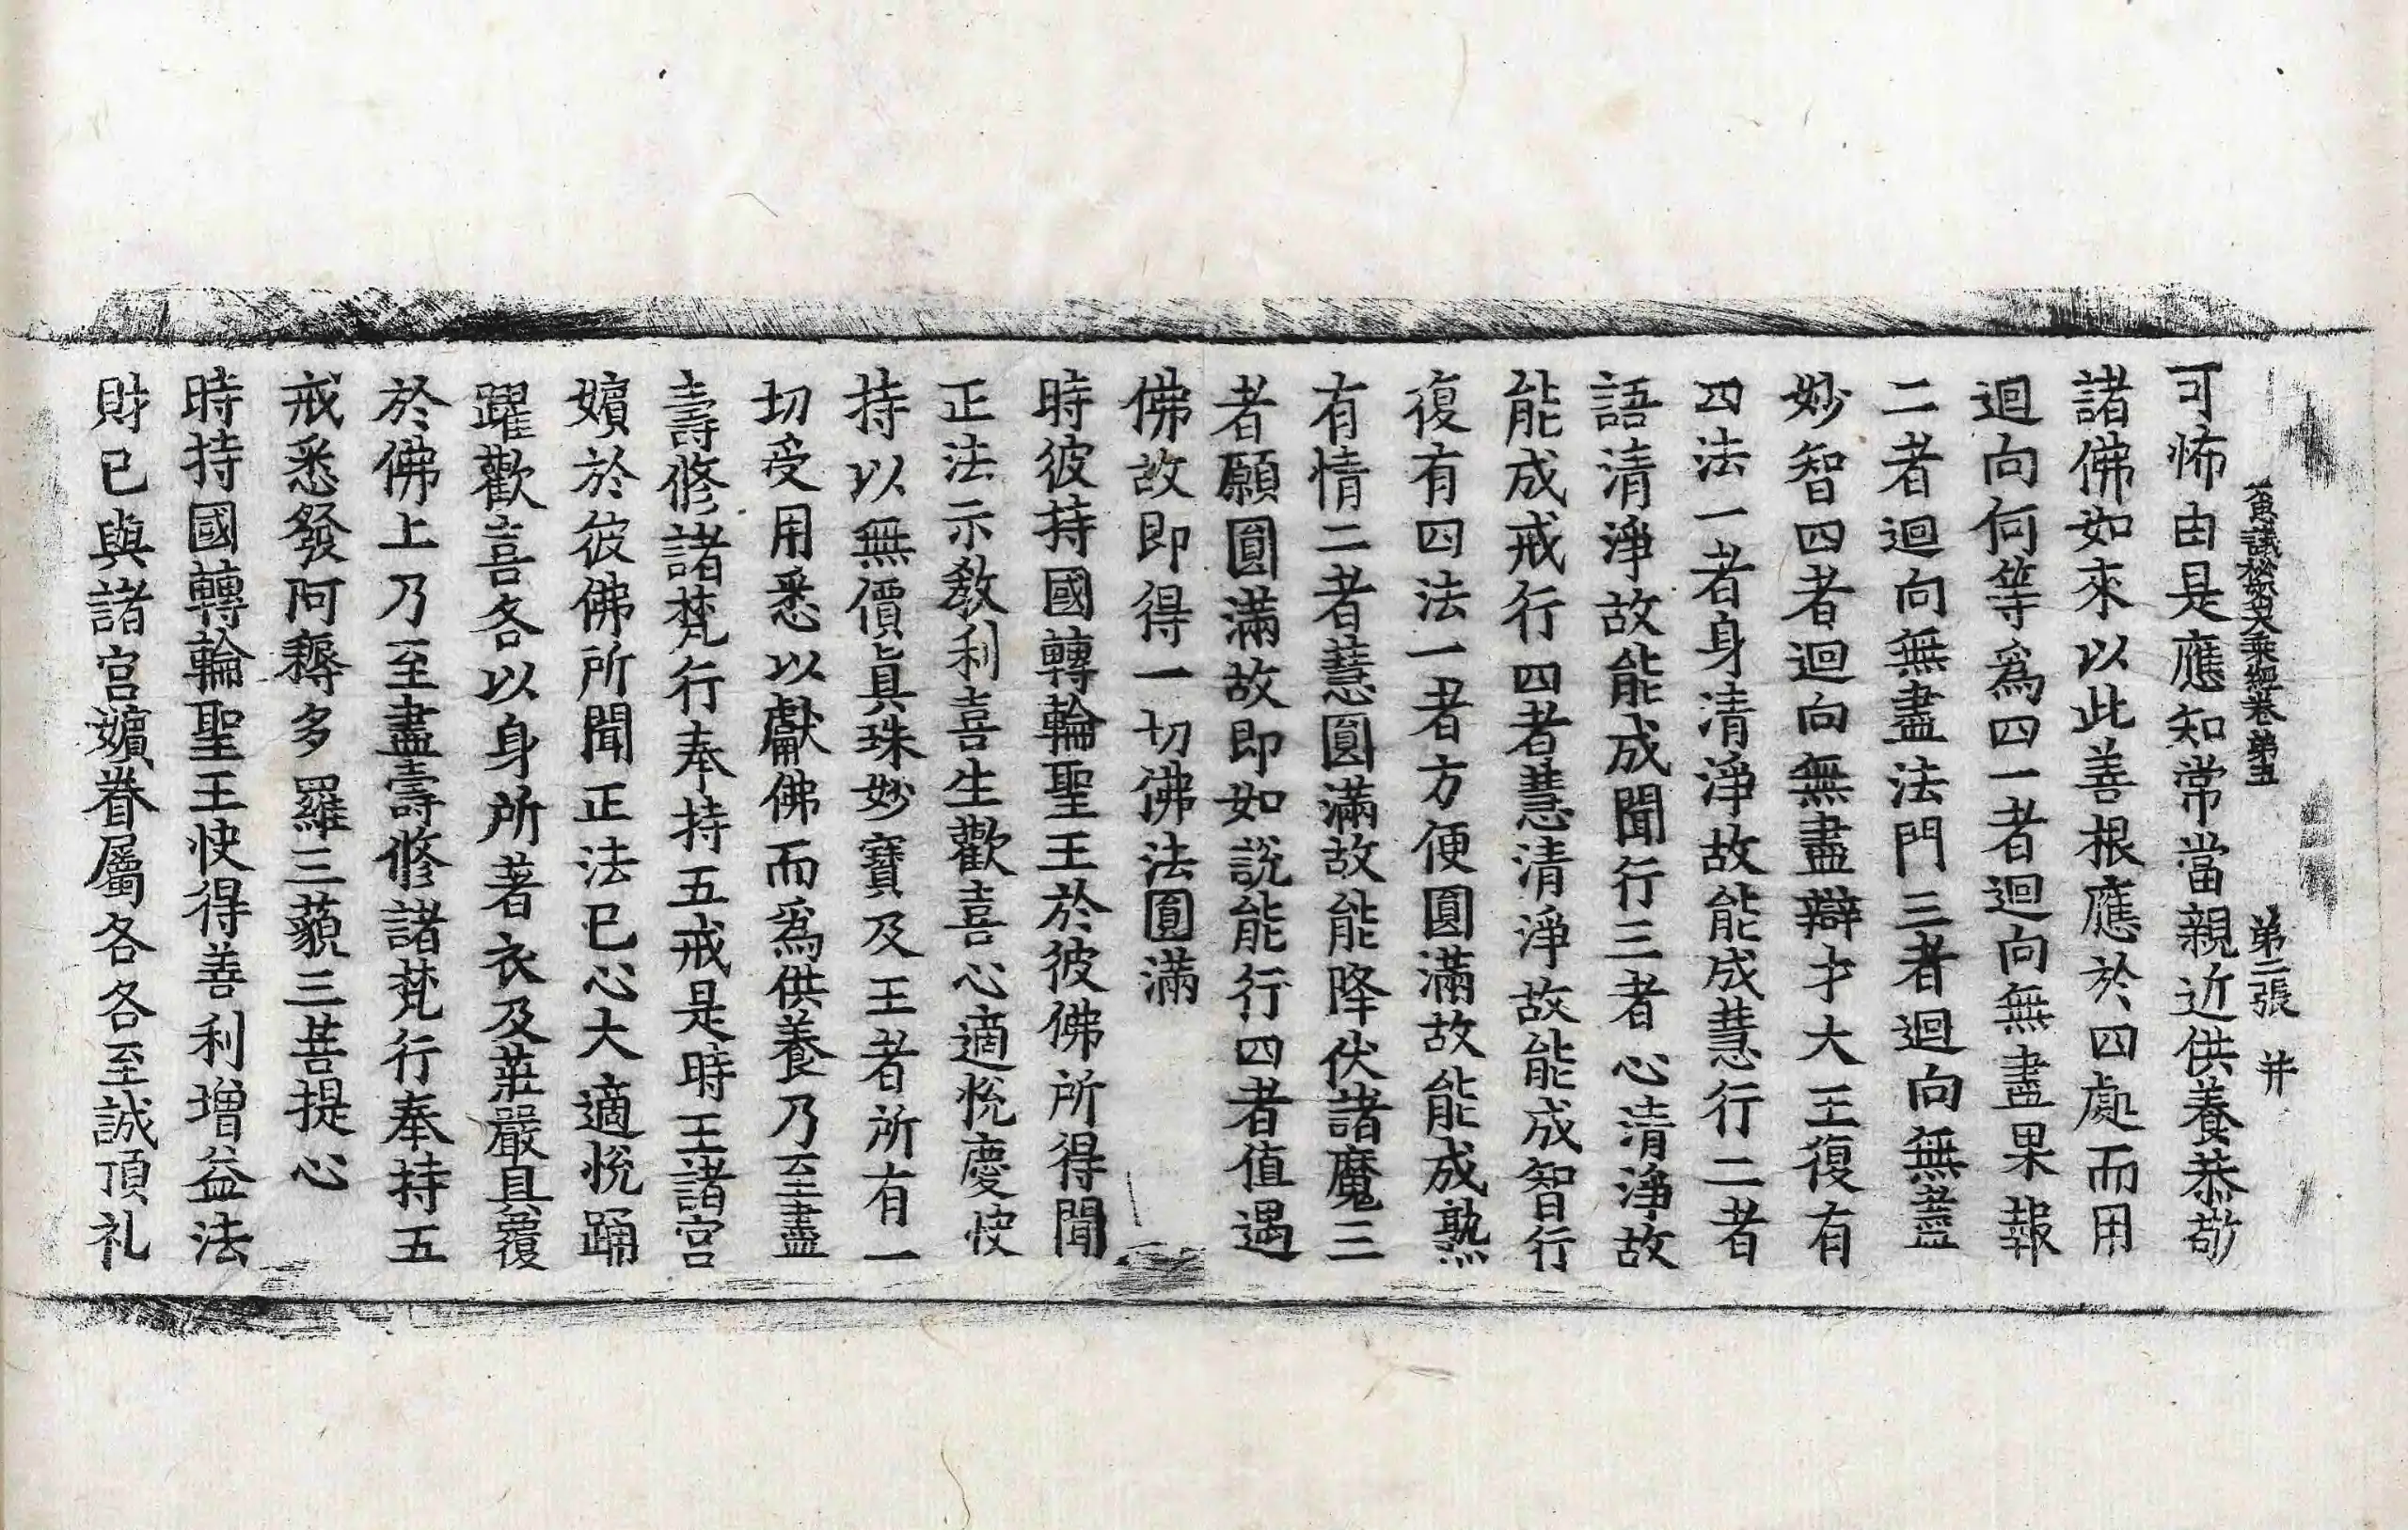 思議祕密大乘經卷第五　第二張　幷
可怖由是應知常當親近供養恭敬
諸佛如來以此善根應於四處而用
迴向何等爲四一者迴向無盡果報
二者迴向無盡法門三者迴向無盡
妙智四者迴向無盡辯才大王復有
四法一者身清淨故能成慧行二者
語清淨故能成聞行三者心清淨故
能成戒行四者慧清淨故能成智行
復有四法一者方便圓滿故能成熟
有情二者慧圓滿故能降伏諸魔三
者願圓滿故即如說能行四者值遇
佛故即得一切佛法圓滿
時彼持國轉輪聖王於彼佛所得聞
正法示教利喜生歡喜心適悅慶快
持以無價眞珠妙寶及王者所有一
切受用悉以獻佛而爲供養乃至盡
壽修諸梵行奉持五戒是時王諸宮
嬪於彼佛所聞正法已心大適悅踊
躍歡喜各以身所著衣及莊嚴具覆
於佛上乃至盡壽修諸梵行奉持五
戒悉發阿耨多羅三藐三菩提心
時持國轉輪聖王快得善利增益法
財已與諸宮嬪眷屬各各至誠頂礼